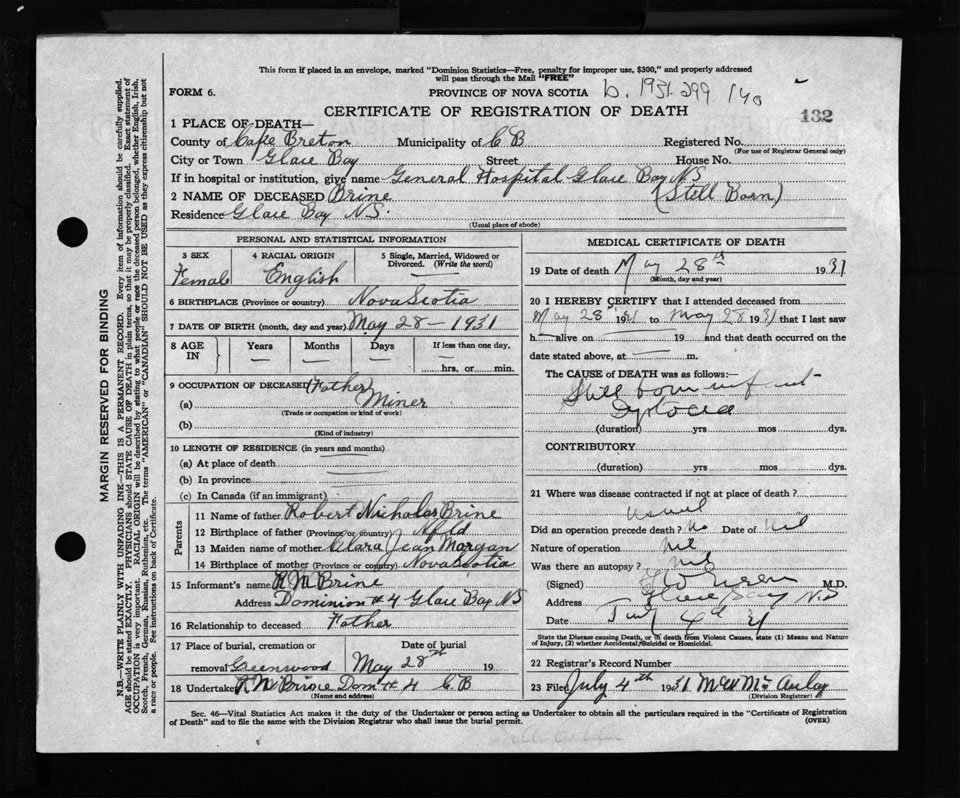 This form if placed in an envelope, marked "Dominion Statistics—Free, penalty for improper use, $300," and properly addressed
will pass through the Mail "FREE"
FORM 6.
PROVINCE OF NOVA SCOTIA
b. 1931 299 140
132
CERTIFICATE OF REGISTRATION OF DEATH
1 PLACE OF DEATH—
County of Cape Breton Municipality of C B Registered No.
(For use of Registrar General only)
City or Town Glace Bay Street House No.
If in hospital or institution, give name General Hospital Glace Bay NS
2 NAME OF DECEASED Brine (Still Born)
Residence Glace Bay NS.
(Usual place of abode)
PERSONAL AND STATISTICAL INFORMATION
3 SEX 4 RACIAL ORIGIN 5 Single, Married, Widowed or
Divorced. (Write the word)
Female English —
6 BIRTHPLACE (Province or country) Nova Scotia
7 DATE OF BIRTH (month, day and year) May 28 - 1931
8 AGE IN Years Months Days If less than one day,
— — — hrs. or min.
9 OCCUPATION OF DECEASED Father
(a) Miner
(Trade or occupation or kind of work)
(b)
(Kind of industry)
10 LENGTH OF RESIDENCE (in years and months)
(a) At place of death
(b) In province
(c) In Canada (if an immigrant)
Parents
11 Name of father Robert Nicholas Brine
12 Birthplace of father (Province or country) Nfld
13 Maiden name of mother Clara Jean Morgan
14 Birthplace of mother (Province or country) Nova Scotia
15 Informant's name R N Brine
Address Dominion #4 Glace Bay NS
16 Relationship to deceased Father
17 Place of burial, cremation or Date of burial
removal Greenwood May 28th 19
18 Undertaker R N Brine Dom #4 C B
(Name and address)
MEDICAL CERTIFICATE OF DEATH
19 Date of death May 28th 1931
(Month, day and year)
20 I HEREBY CERTIFY that I attended deceased from
May 28th 1931 to May 28 1931 that I last saw
h alive on 19 and that death occurred on the
date stated above, at — m.
The CAUSE of DEATH was as follows:—
Still born infant
Dystocia
(duration) yrs mos dys.
CONTRIBUTORY
(duration) yrs. mos dys.
21 Where was disease contracted if not at place of death?
Did an operation precede death? No Date of Nil
Nature of operation Nil
Was there an autopsy? Nil
(Signed) M.D.
Address Glace Bay N.S
Date 4th 31
State the Disease causing Death, or in death from Violent Causes, state (1) Means and Nature
of Injury, (2) whether Accidental, Suicidal or Homicidal.
22 Registrar's Record Number
23 Filed July 4th 1931
(Division Registrar)
Sec. 46—Vital Statistics Act makes it the duty of the Undertaker or person acting as Undertaker to obtain all the particulars required in the "Certificate of Registration
of Death" and to file the same with the Division Registrar who shall issue the burial permit.
(OVER)
MARGIN RESERVED FOR BINDING
N.B.—WRITE PLAINLY WITH UNFADING INK—THIS IS A PERMANENT RECORD. Every item of information should be carefully supplied.
AGE should be stated EXACTLY. PHYSICIANS should STATE CAUSE OF DEATH in plain terms, so that it may be properly classified. Exact statement of
OCCUPATION is very important. RACIAL ORIGIN will be described by stating to what people or race the deceased person belonged, whether English, Irish,
Scotch, French, German, Russian, Ruthenian, etc. The terms "AMERICAN" or "CANADIAN" SHOULD NOT BE USED as they express citizenship but not
a race or people. See instructions on back of Certificate.